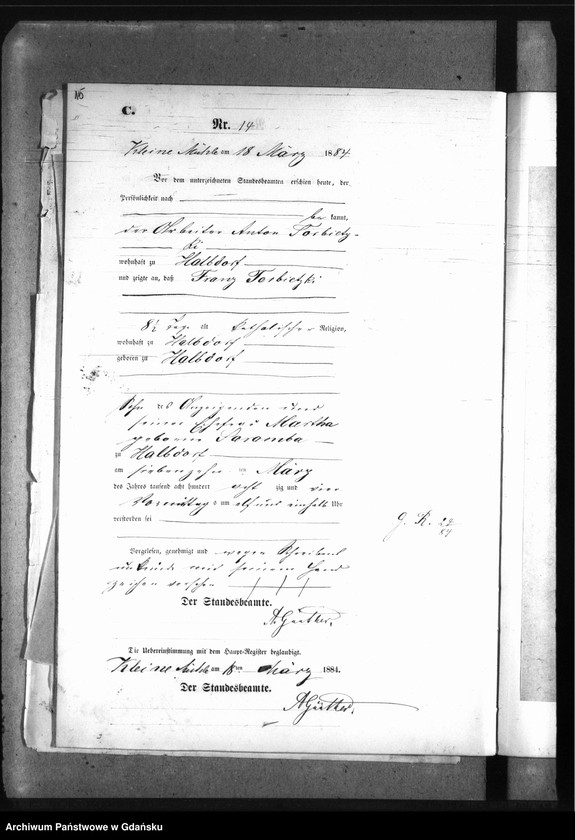 C.
Nr. 14
Kleine Mühle am 18 März 1884
Vor dem unterzeichneten Standesbeamten erschien heute, der
Persönlichkeit nach
be kannt,
der Arbeiter Anton Torbictz-
ki
wohnhaft zu Halbdorf
und zeigte an, daß Franz Torbictzki
8½ Tage alt katholischer Religion,
wohnhaft zu Halbdorf
geboren zu Halbdorf
Sohn des Anzeigenden und
seiner Ehefrau Martha
geborne Saramba
zu Halbdorf
am siebenzehn ten März
des Jahres tausend acht hundert acht zig und vier
Vormittag s um elf und einhalb Uhr
verstorben sei
Vorgelesen, genehmigt und wegen Schreibens
unkunde mit seinem Hand
zeichen versehen
Der Standesbeamte.
Die Uebereinstimmung mit dem Haupt-Register beglaubigt.
Kleine Mühle am 18 ten März 1884.
Der Standesbeamte.
Archiwum Państwowe w Gdańsku